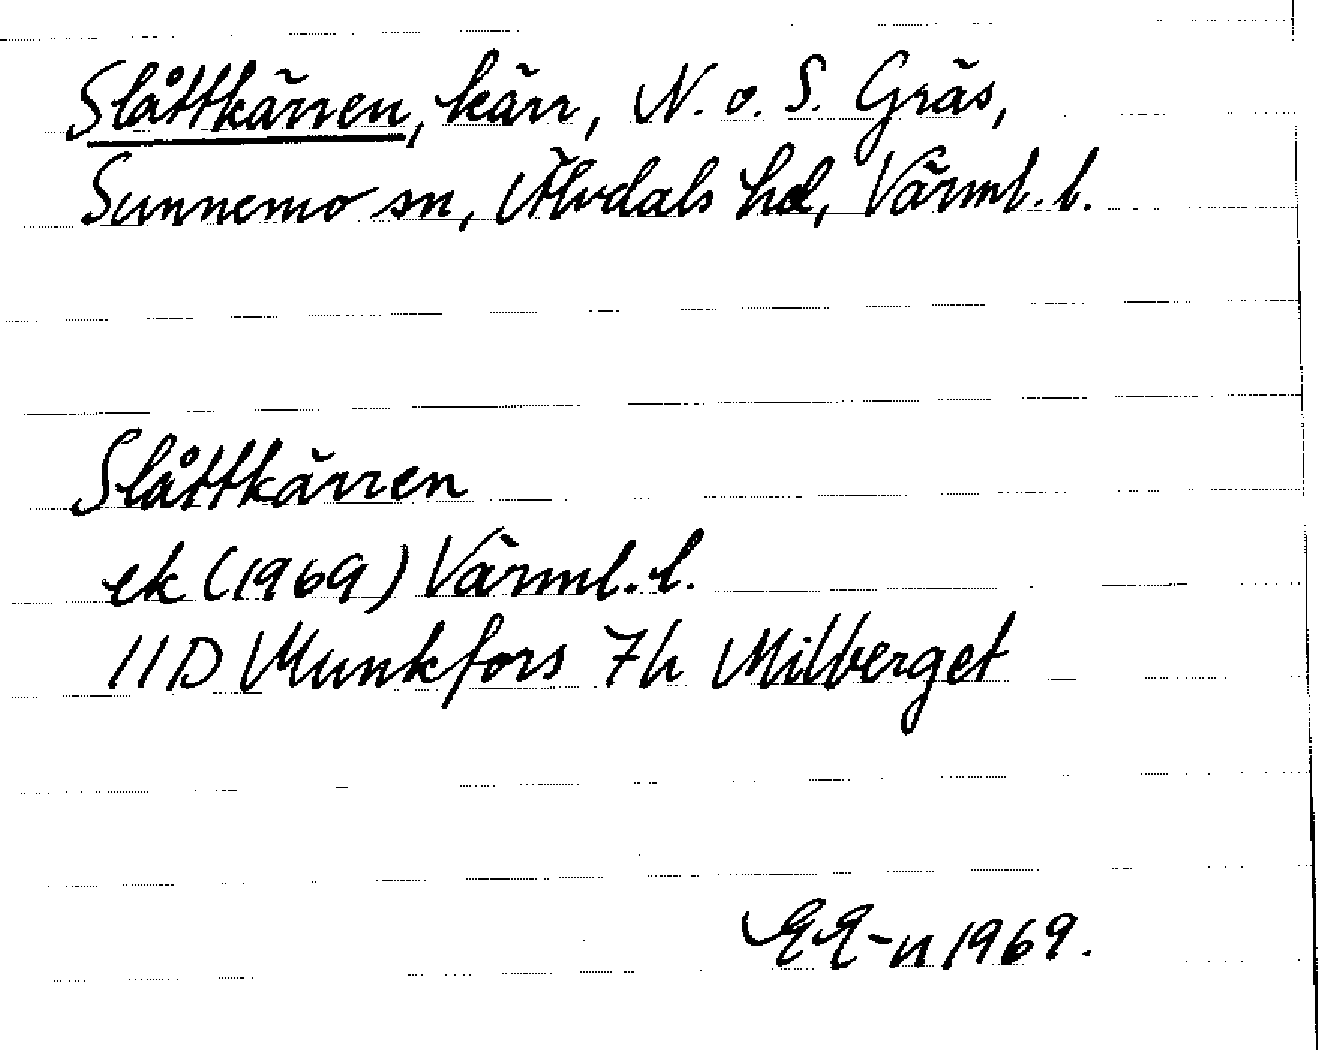 Slåttkärren, kärr, N. o. S. Gräs,
Sunnemo sn, Älvdals hd, Värml. l.
Slåttkärren
ek (1969) Värml. l.
11D Munkfors 7h Milberget
EE-n 1969.